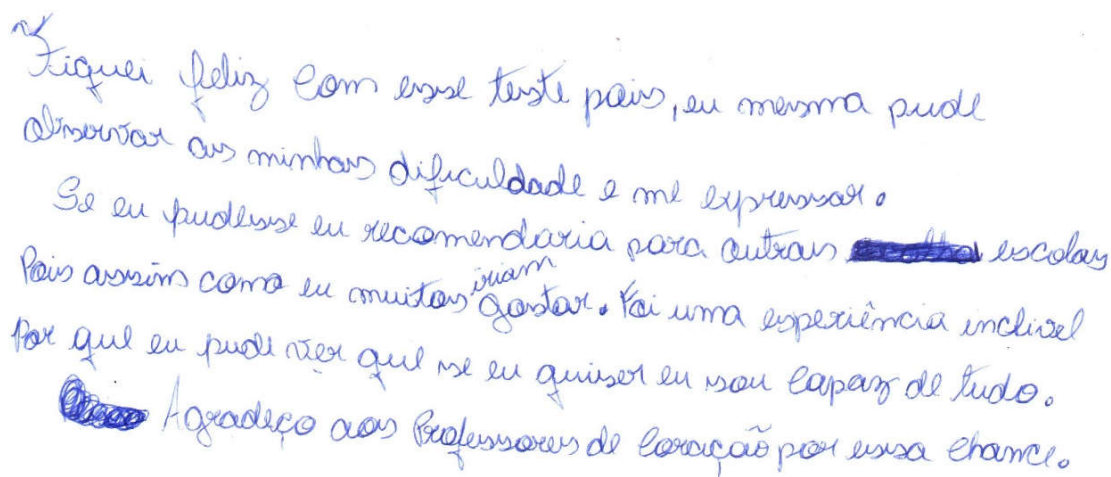 Fiquei feliz com esse teste pois, eu mesma pude
observar as minhas dificuldade e me expressar.
Se eu pudesse eu recomendaria para outras escolas
Pois assim como eu muitos iriam gostar. Foi uma experiência inclivel
Por que eu pude ver que se eu quiser eu sou capaz de tudo.
Agradeço aos Professores de coração por essa chance.